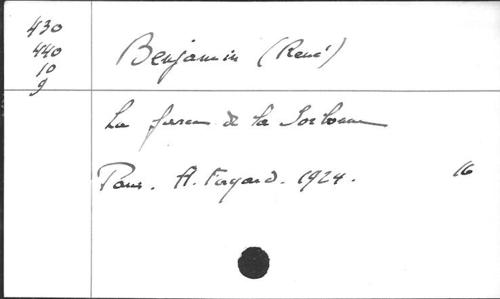 430
440
10
9
Benjamin (René)
La farce de la Sorbonne
Paris. A. Fayard. 1924.
16